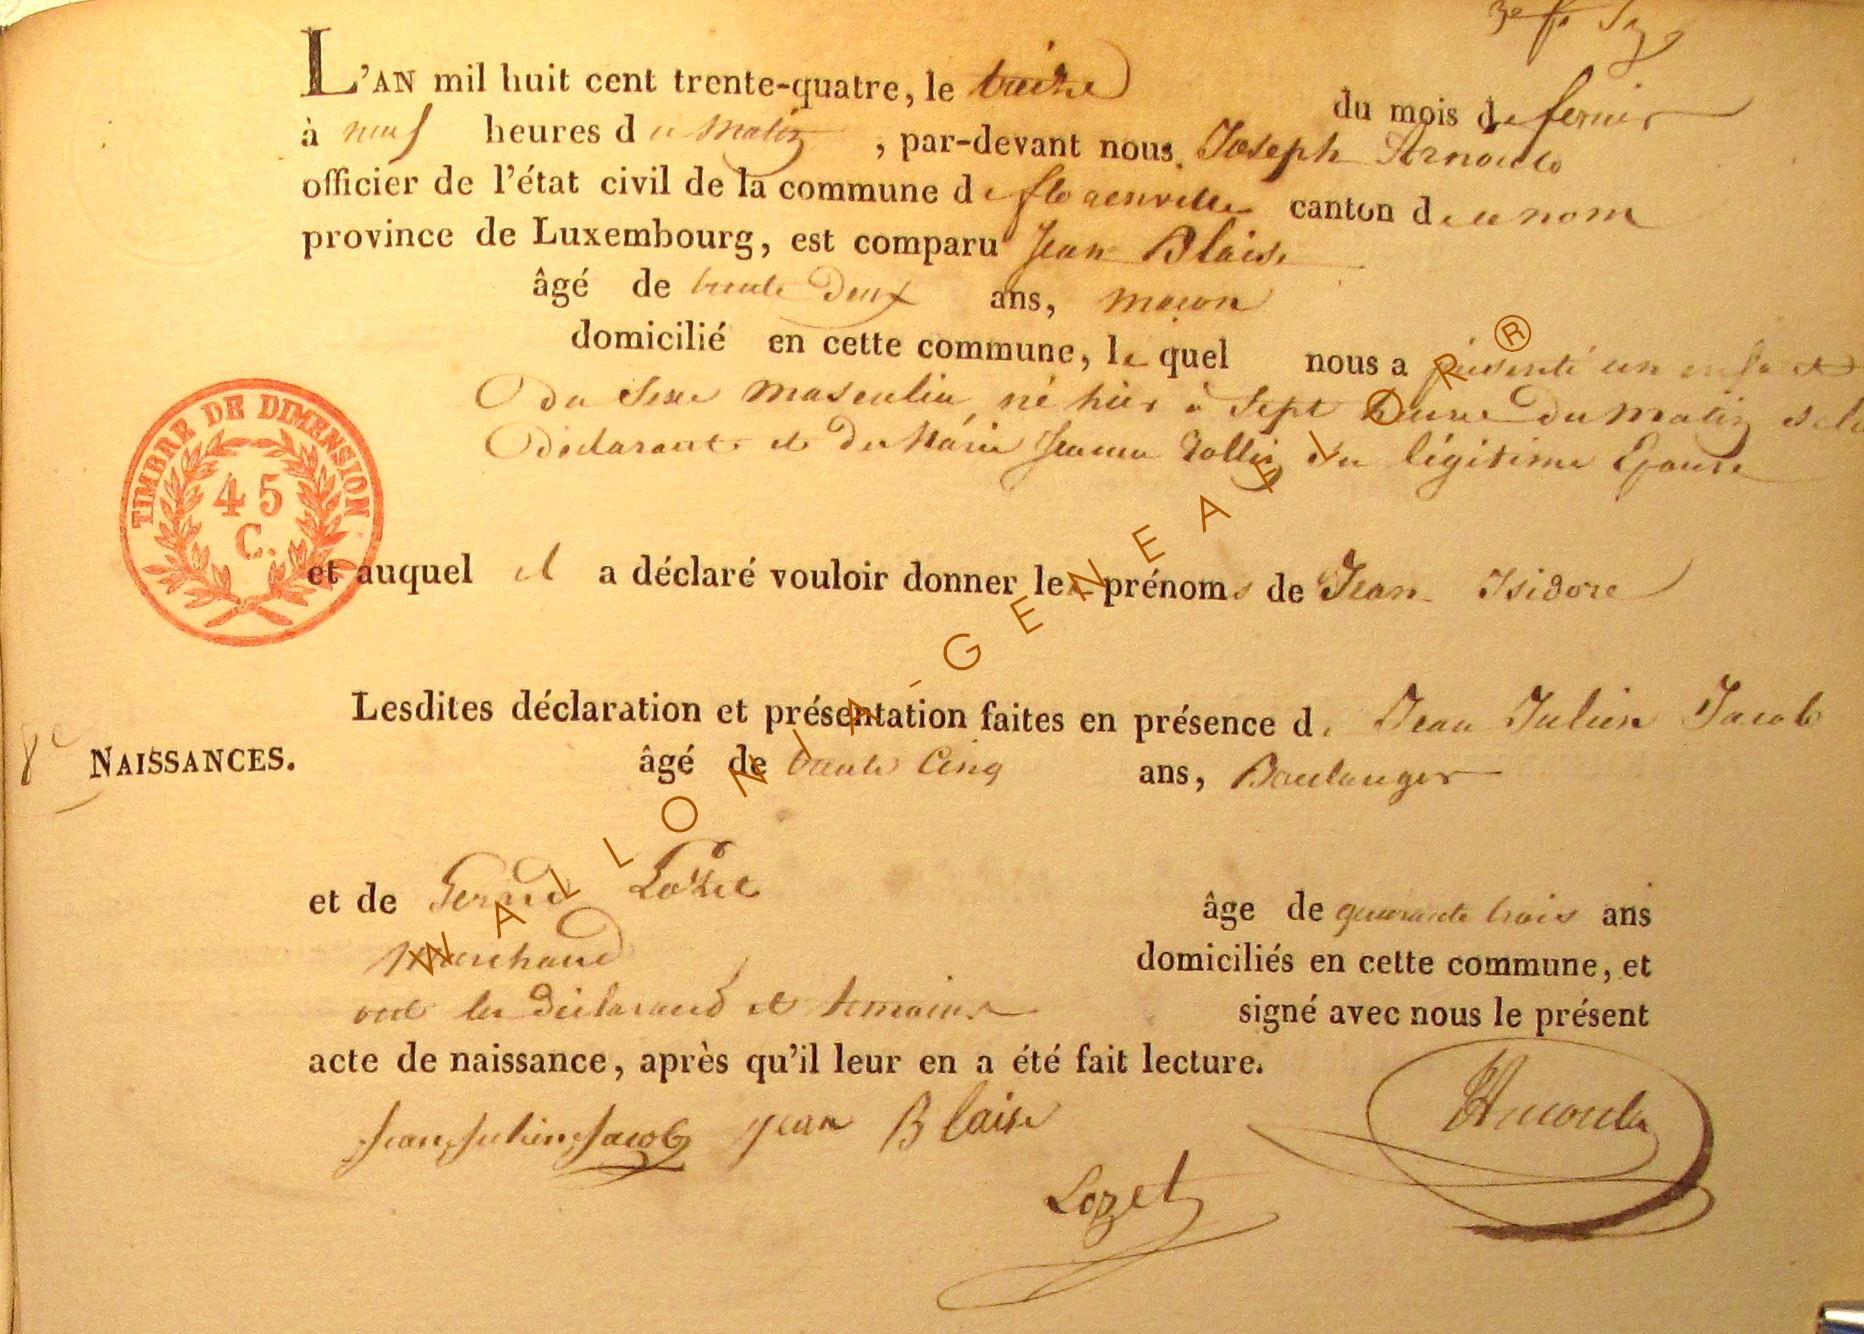 L'AN mil huit cent trente-quatre, le treize du mois de fevrier
à neuf heures du matin, par-devant nous Joseph Arnould
officier de l'état civil de la commune de florenville canton de ce nom
province de Luxembourg, est comparu Jean Blaise
âgé de trente deux ans, maçon
domicilié en cette commune, le quel nous a présenté un enfant
du sexe masculin, né hier à sept heure du matin de lui
déclarant et de Marie Jeanne Rollin son légitime Epouse
TIMBRE DE DIMENSION
45
C.
et auquel il a déclaré vouloir donner les prénoms de Jean Isidore
Lesdites déclaration et présentation faites en présence de Jean Julien Jacob
8e NAISSANCES.
âgé de trente cinq ans, Boulanger
et de Lozet âge de quarante trois ans
Marchand domiciliés en cette commune, et
ont les déclarand et temoins signé avec nous le présent
acte de naissance, après qu'il leur en a été fait lecture.
Jean Julien Jacob Jean Blaise Arnould
Lozet
WALLONIA-GENEAFLOR®